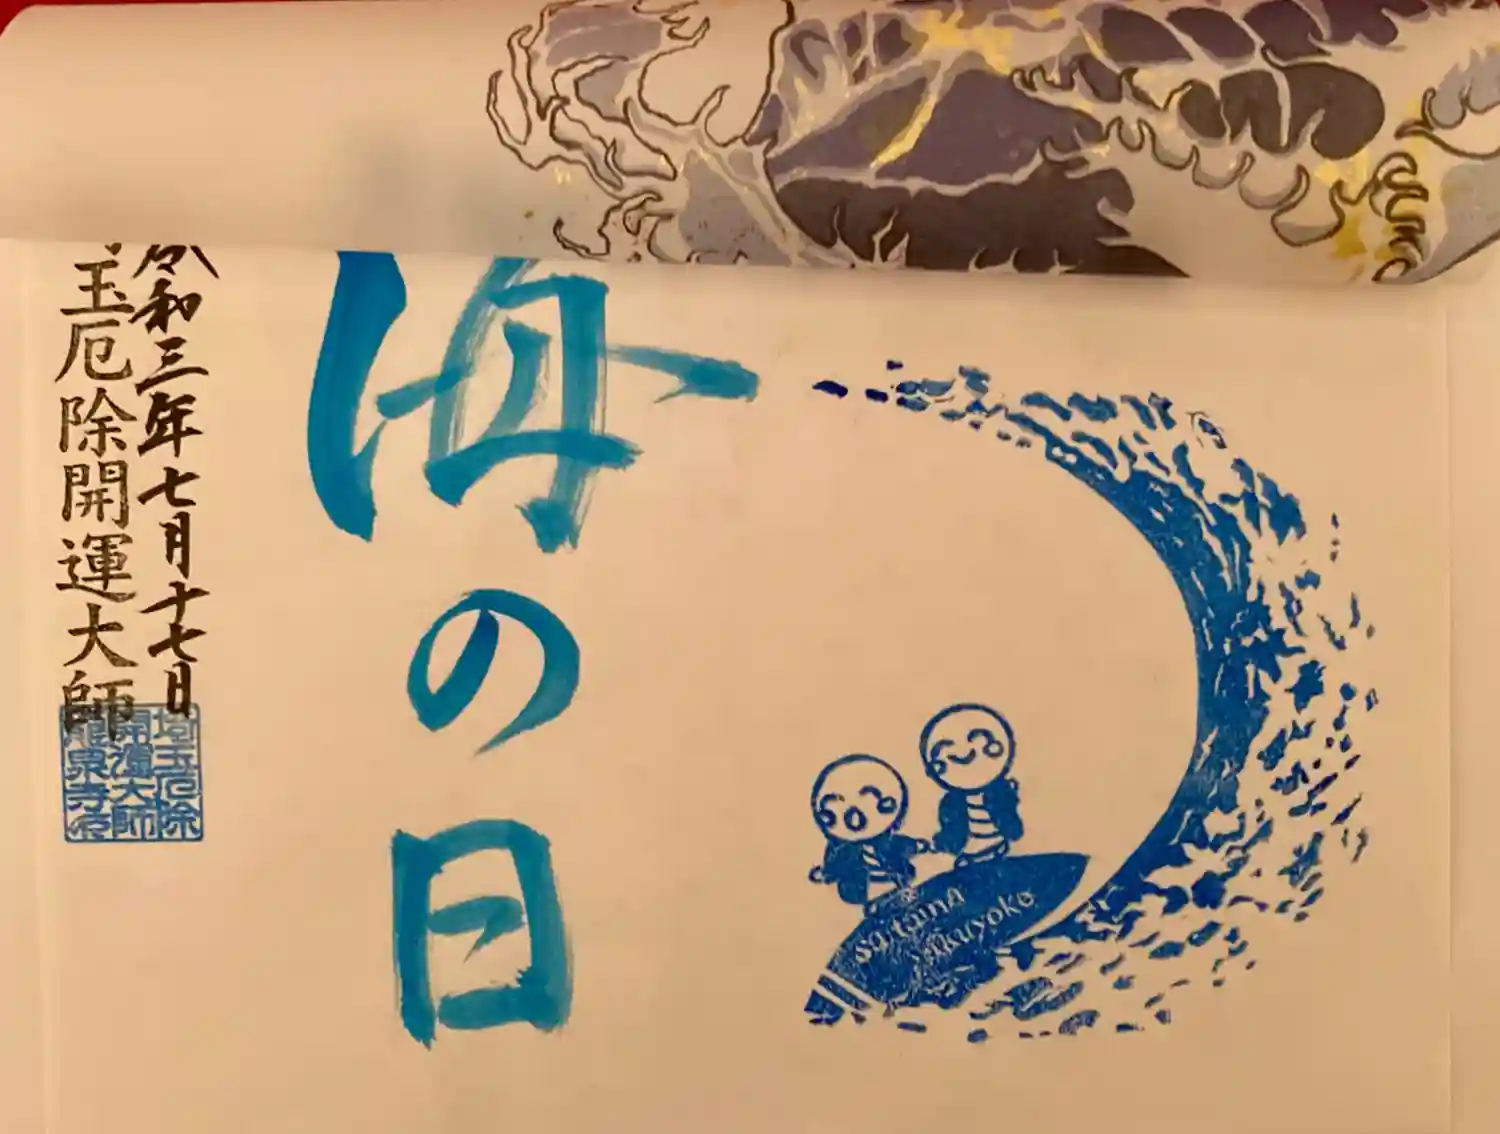 海の日
saitama
yakuyoke
令和三年七月十七日
玉厄除開運大師
埼玉厄除
開運大師
龍泉寺印